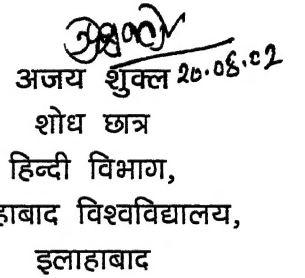 अजय शुक्ल 20.08.02
शोध छात्र
हिन्दी विभाग,
हाबाद विश्वविद्यालय,
इलाहाबाद